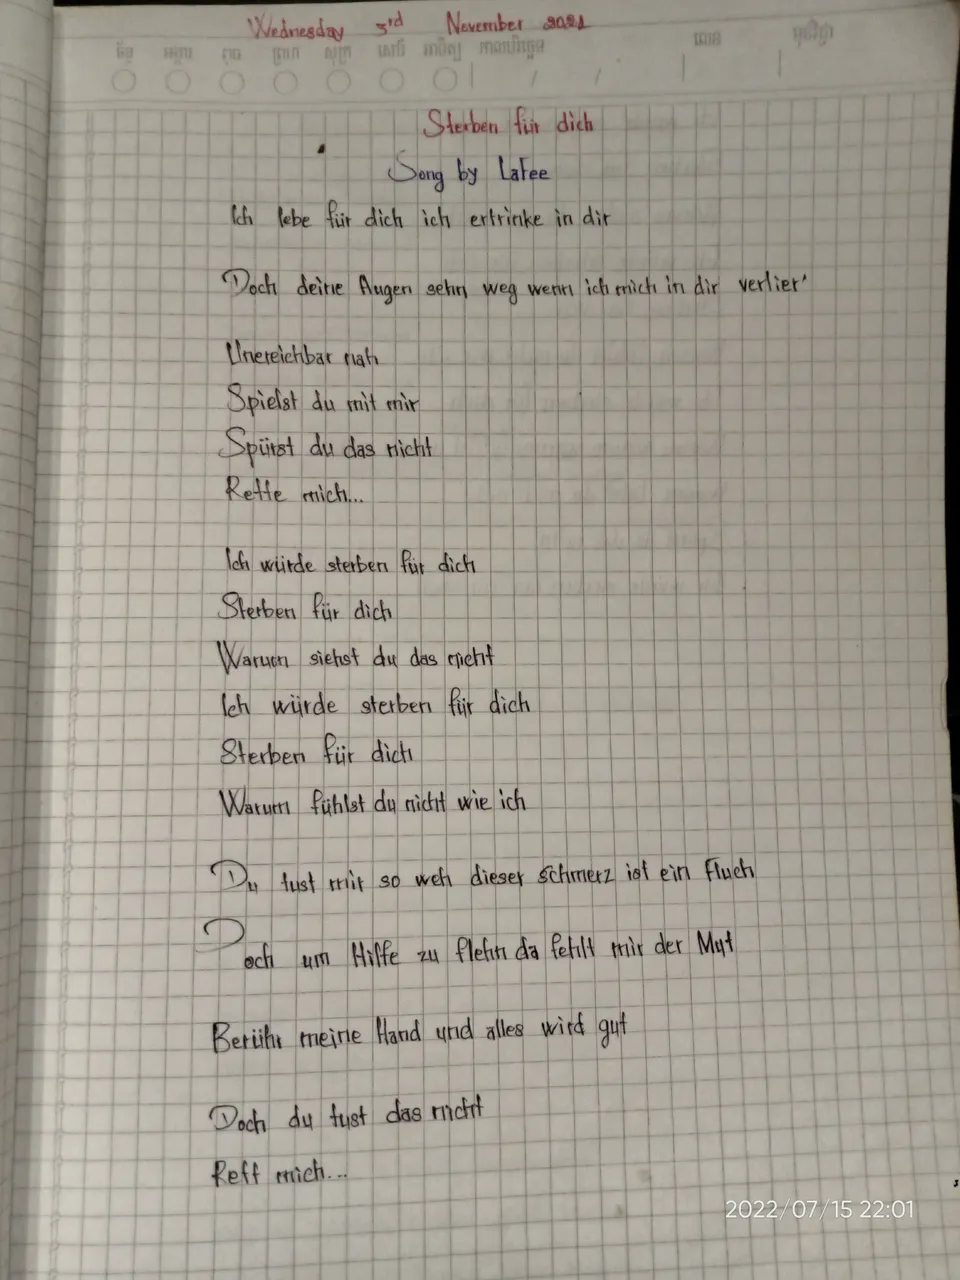 Wednesday 3rd November 2021
ច័ន្ទ អង្គារ ពុធ ព្រហ សុក្រ សៅរ៍ អាទិត្យ កាលបរិច្ឆេទ
Sterben für dich
Song by LaFee
Ich lebe für dich ich ertrinke in dir
Doch deine Augen sehn weg wenn ich mich in dir verlier'
Unereichbar nah
Spielst du mit mir
Spürst du das nicht
Rette mich...
Ich würde sterben für dich
Sterben für dich
Warum siehst du das nicht
Ich würde sterben für dich
Sterben für dich
Warum fühlst du nicht wie ich
Du tust mir so weh dieser schmerz ist ein Fluch
Doch um Hilfe zu flehn da fehlt mir der Mut
Berühr meine Hand und alles wird gut
Doch du tust das nicht
Rett mich...
2022/07/15 22:01